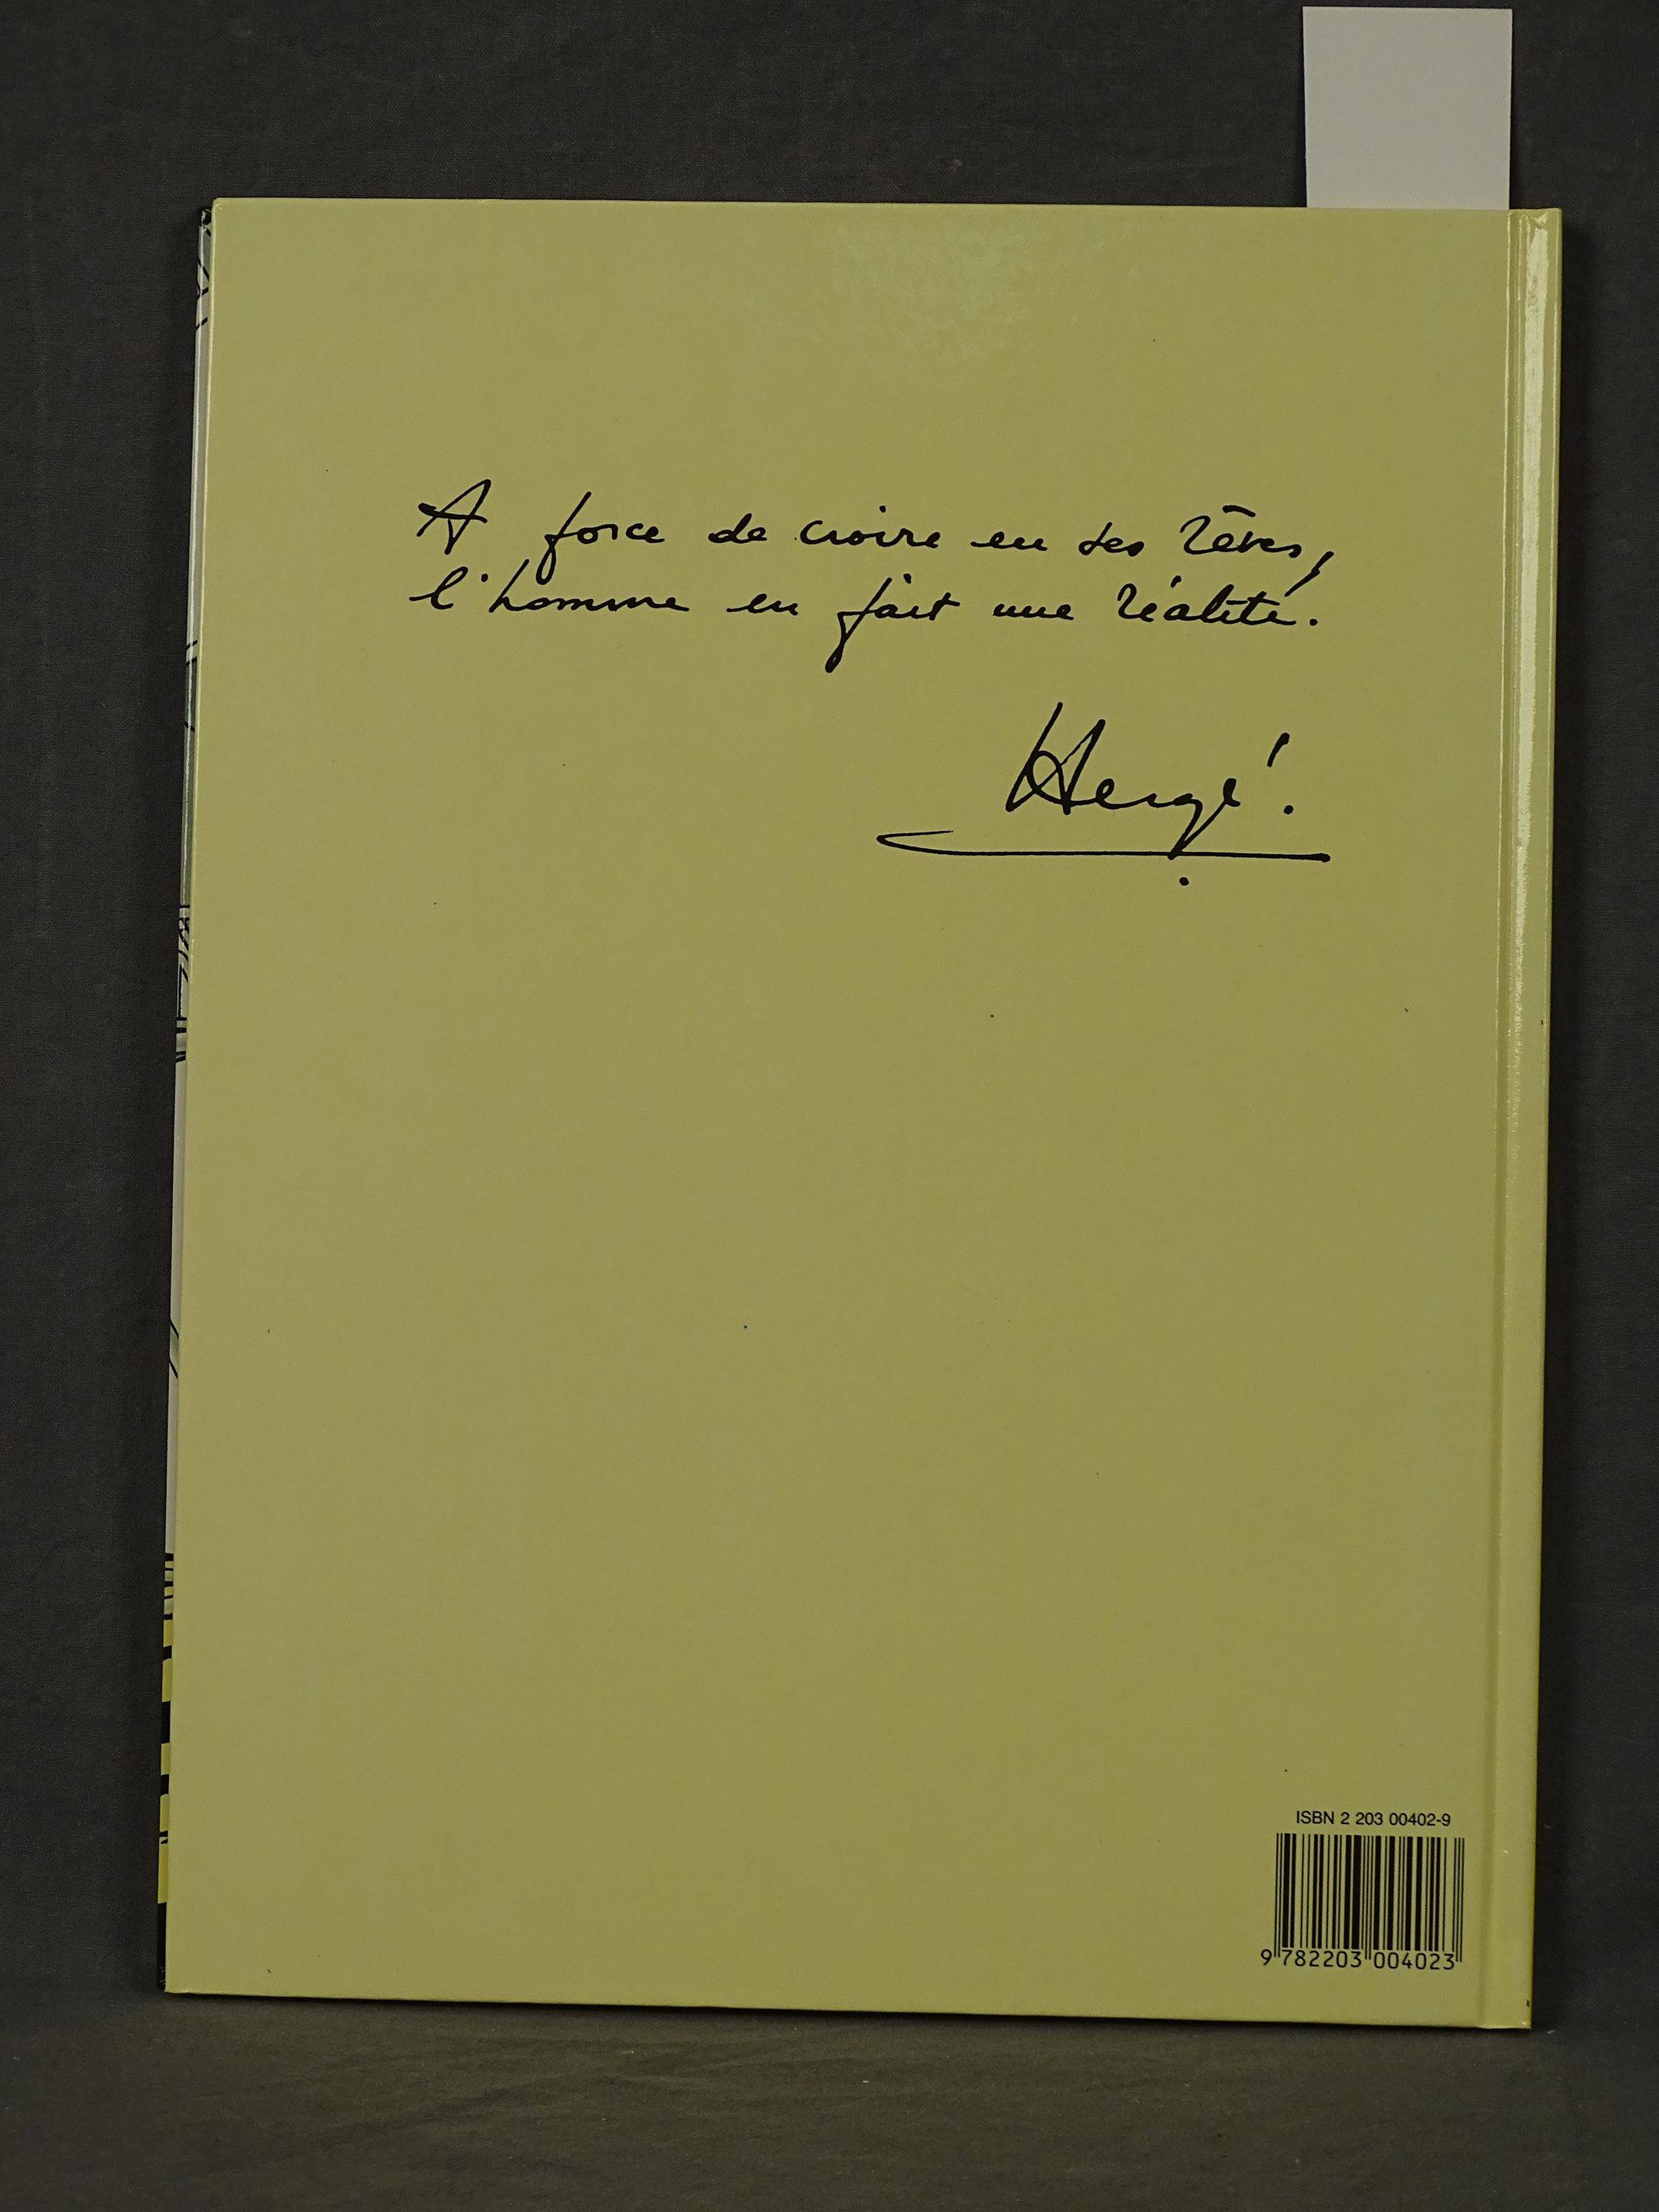 A force de croire en ses rêves,
l'homme en fait une réalité.
Hergé.
ISBN 2 203 00402-9
9 782203 004023